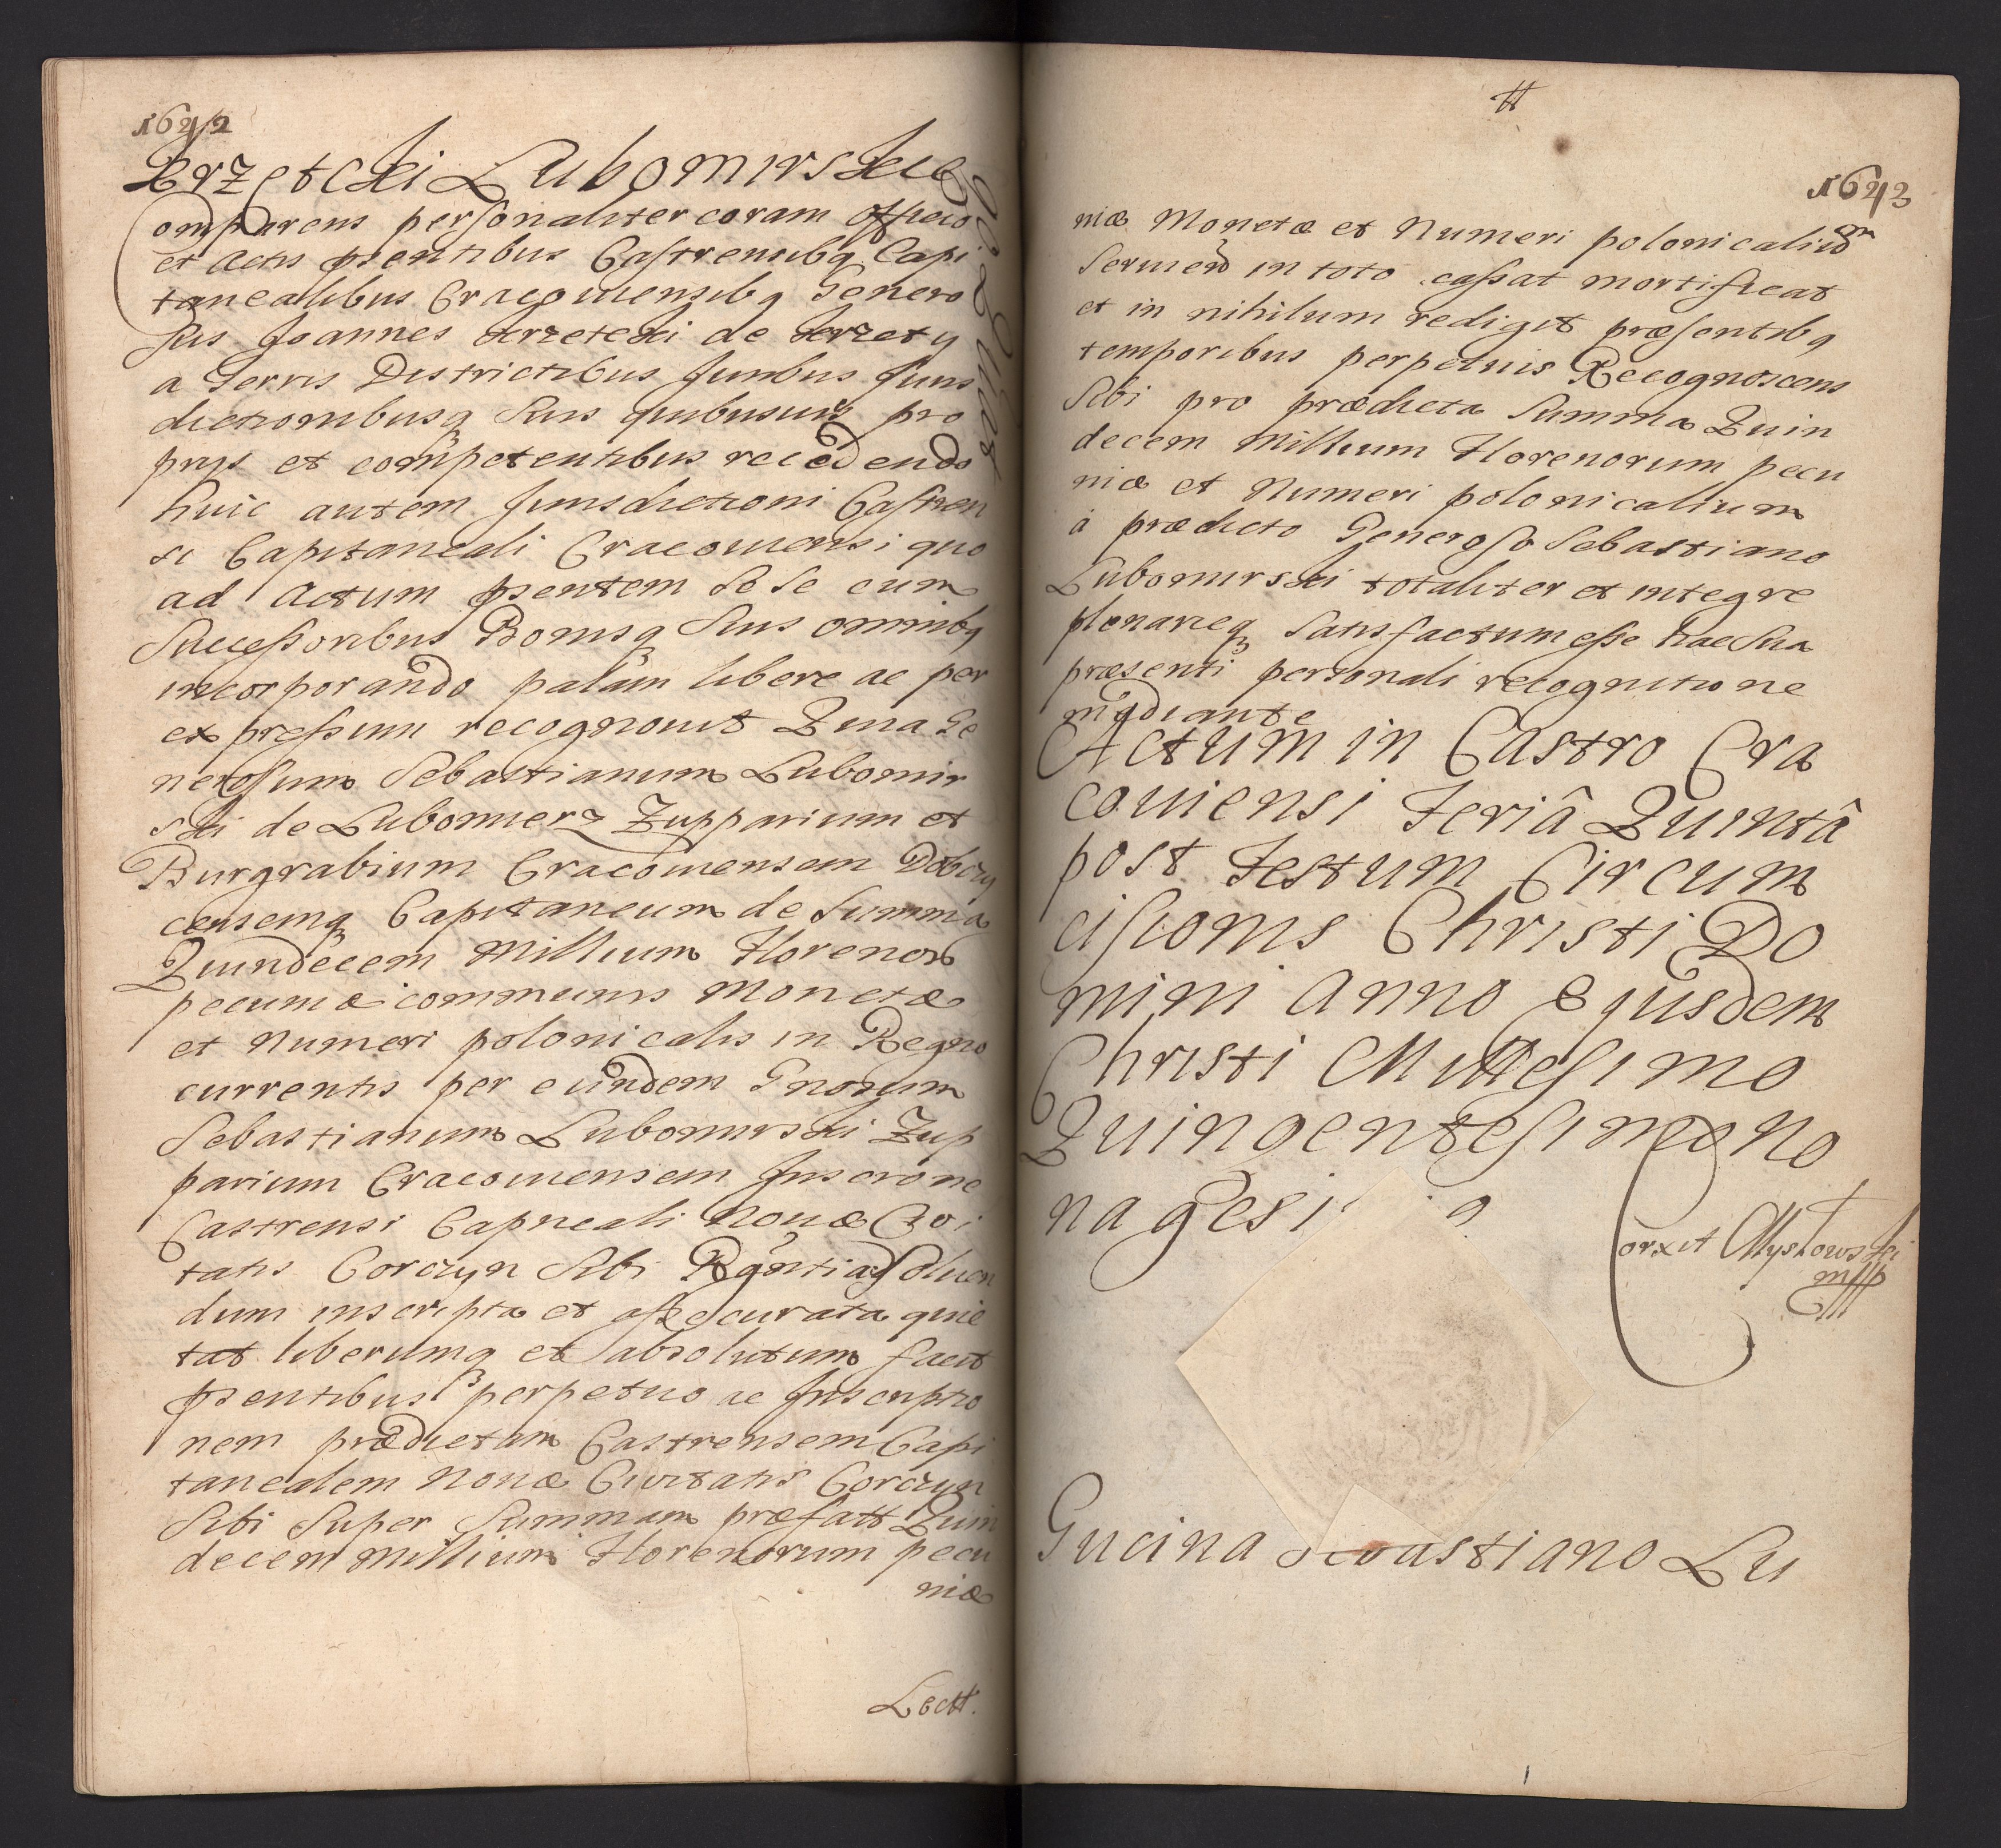 1642
Krzetcki Lubomirskie
Comparens personaliter coram offieio
et Actis psentibus Castrensibq Capi
tanealibus Cracoviensibq Genero
sus Joannes Krzetcki de Krzety
a Terris Districtibus Juribus Juris
dictionibusq suis quibusvis pro
prijs et competentibus recedendo
huic autem Jurisdictioni Castren
si Capitaneali Cracoviensi quo
ad Actum psentem se se cum
Successoribus Bonisq suis omnibq
incorporando palam libere ac per
expressum recognovit Quia Ge
nerosum Sebastianum Lubomir
ski de Lubomierz Zupparium et
Burgrabium Cracoviensem Dobczy
censemq Capitaneum de Summa
Quindecem Millium Florenor
pecuniæ communis Monetæ
et Numeri polonicalis in Regno
currentis per eundem Gnosum
Sebastianum Lubomirski Zup
parium Cracoviensem Inscrone
Castrensi Capneali Novæ Civi
tatis Corczyn sibi solven
dum inscripta et assecurata quie
tat liberumq et absolutum facit
psentibus perpetuo ac Inscriptio
nem prædictam Castrensem Capi
tanealem Novæ Civitatis Corczyn
sibi super Summam præfatt Quin
decem Millium Florenorum pecu
niæ
Lectt.
1643
niæ Monetæ et Numeri polonicalium
Servien in toto cassat mortificat
et in nihilum rediget præsentibq
temporibus perpetuis Recognoscens
sibi pro prædicta Summa Quin
decem Millium Florenorum pecu
niæ et Numeri polonicalium
à prædicto Generoso Sebastiano
Lubomirski totaliter et integre
plenarieq satisfactum esse hac sua
præsenti personali recognitione
mediante
Actum in Castro Cra
coviensi Feriâ Quintâ
post Festum Circum
cisionis Christi Do
mini Anno Ejusdem
Christi Millesimo
Quingentesimo No
nagesi o
Corxit Myskowski
mpp
Gucina Sebastiano Lu